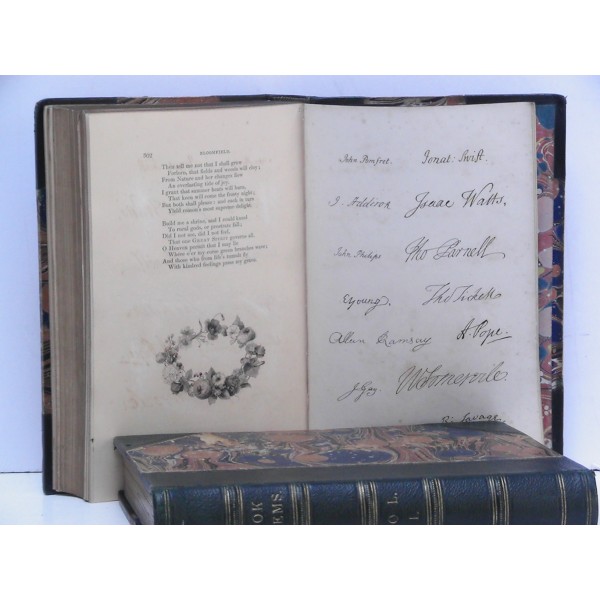 302 BLOOMFIELD.
Thou tell me not that I shall grow
Forlorn, that fields and woods will cloy;
From Nature and her changes flow
An everlasting tide of joy.
I grant that summer heats will burn,
That keen will come the frosty night;
But both shall please: and each in turn
Yield reason's most supreme delight.
Build me a shrine, and I could kneel
To rural gods, or prostrate fall;
Did I not see, did I not feel,
That one GREAT SPIRIT governs all.
O Heaven permit that I may lie
Where o'er my corse green branches wave;
And those who from life's tumults fly
With kindred feelings press my grave.
John Pomfret. Jonat: Swift.
J. Addison Isaac Watts.
John Philips Tho Parnell
E Young. Tho Tickell
Allan Ramsay A. Pope.
J. Gay W Somervile.
Ri: Savage.
OK
EMS.
O L